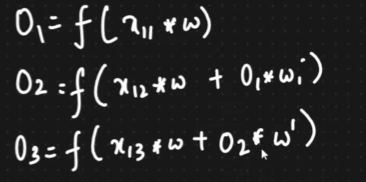 O₁ = f(x₁₁ * w)
O₂ = f(x₁₂ * w + O₁ * w')
O₃ = f(x₁₃ * w + O₂ * w')